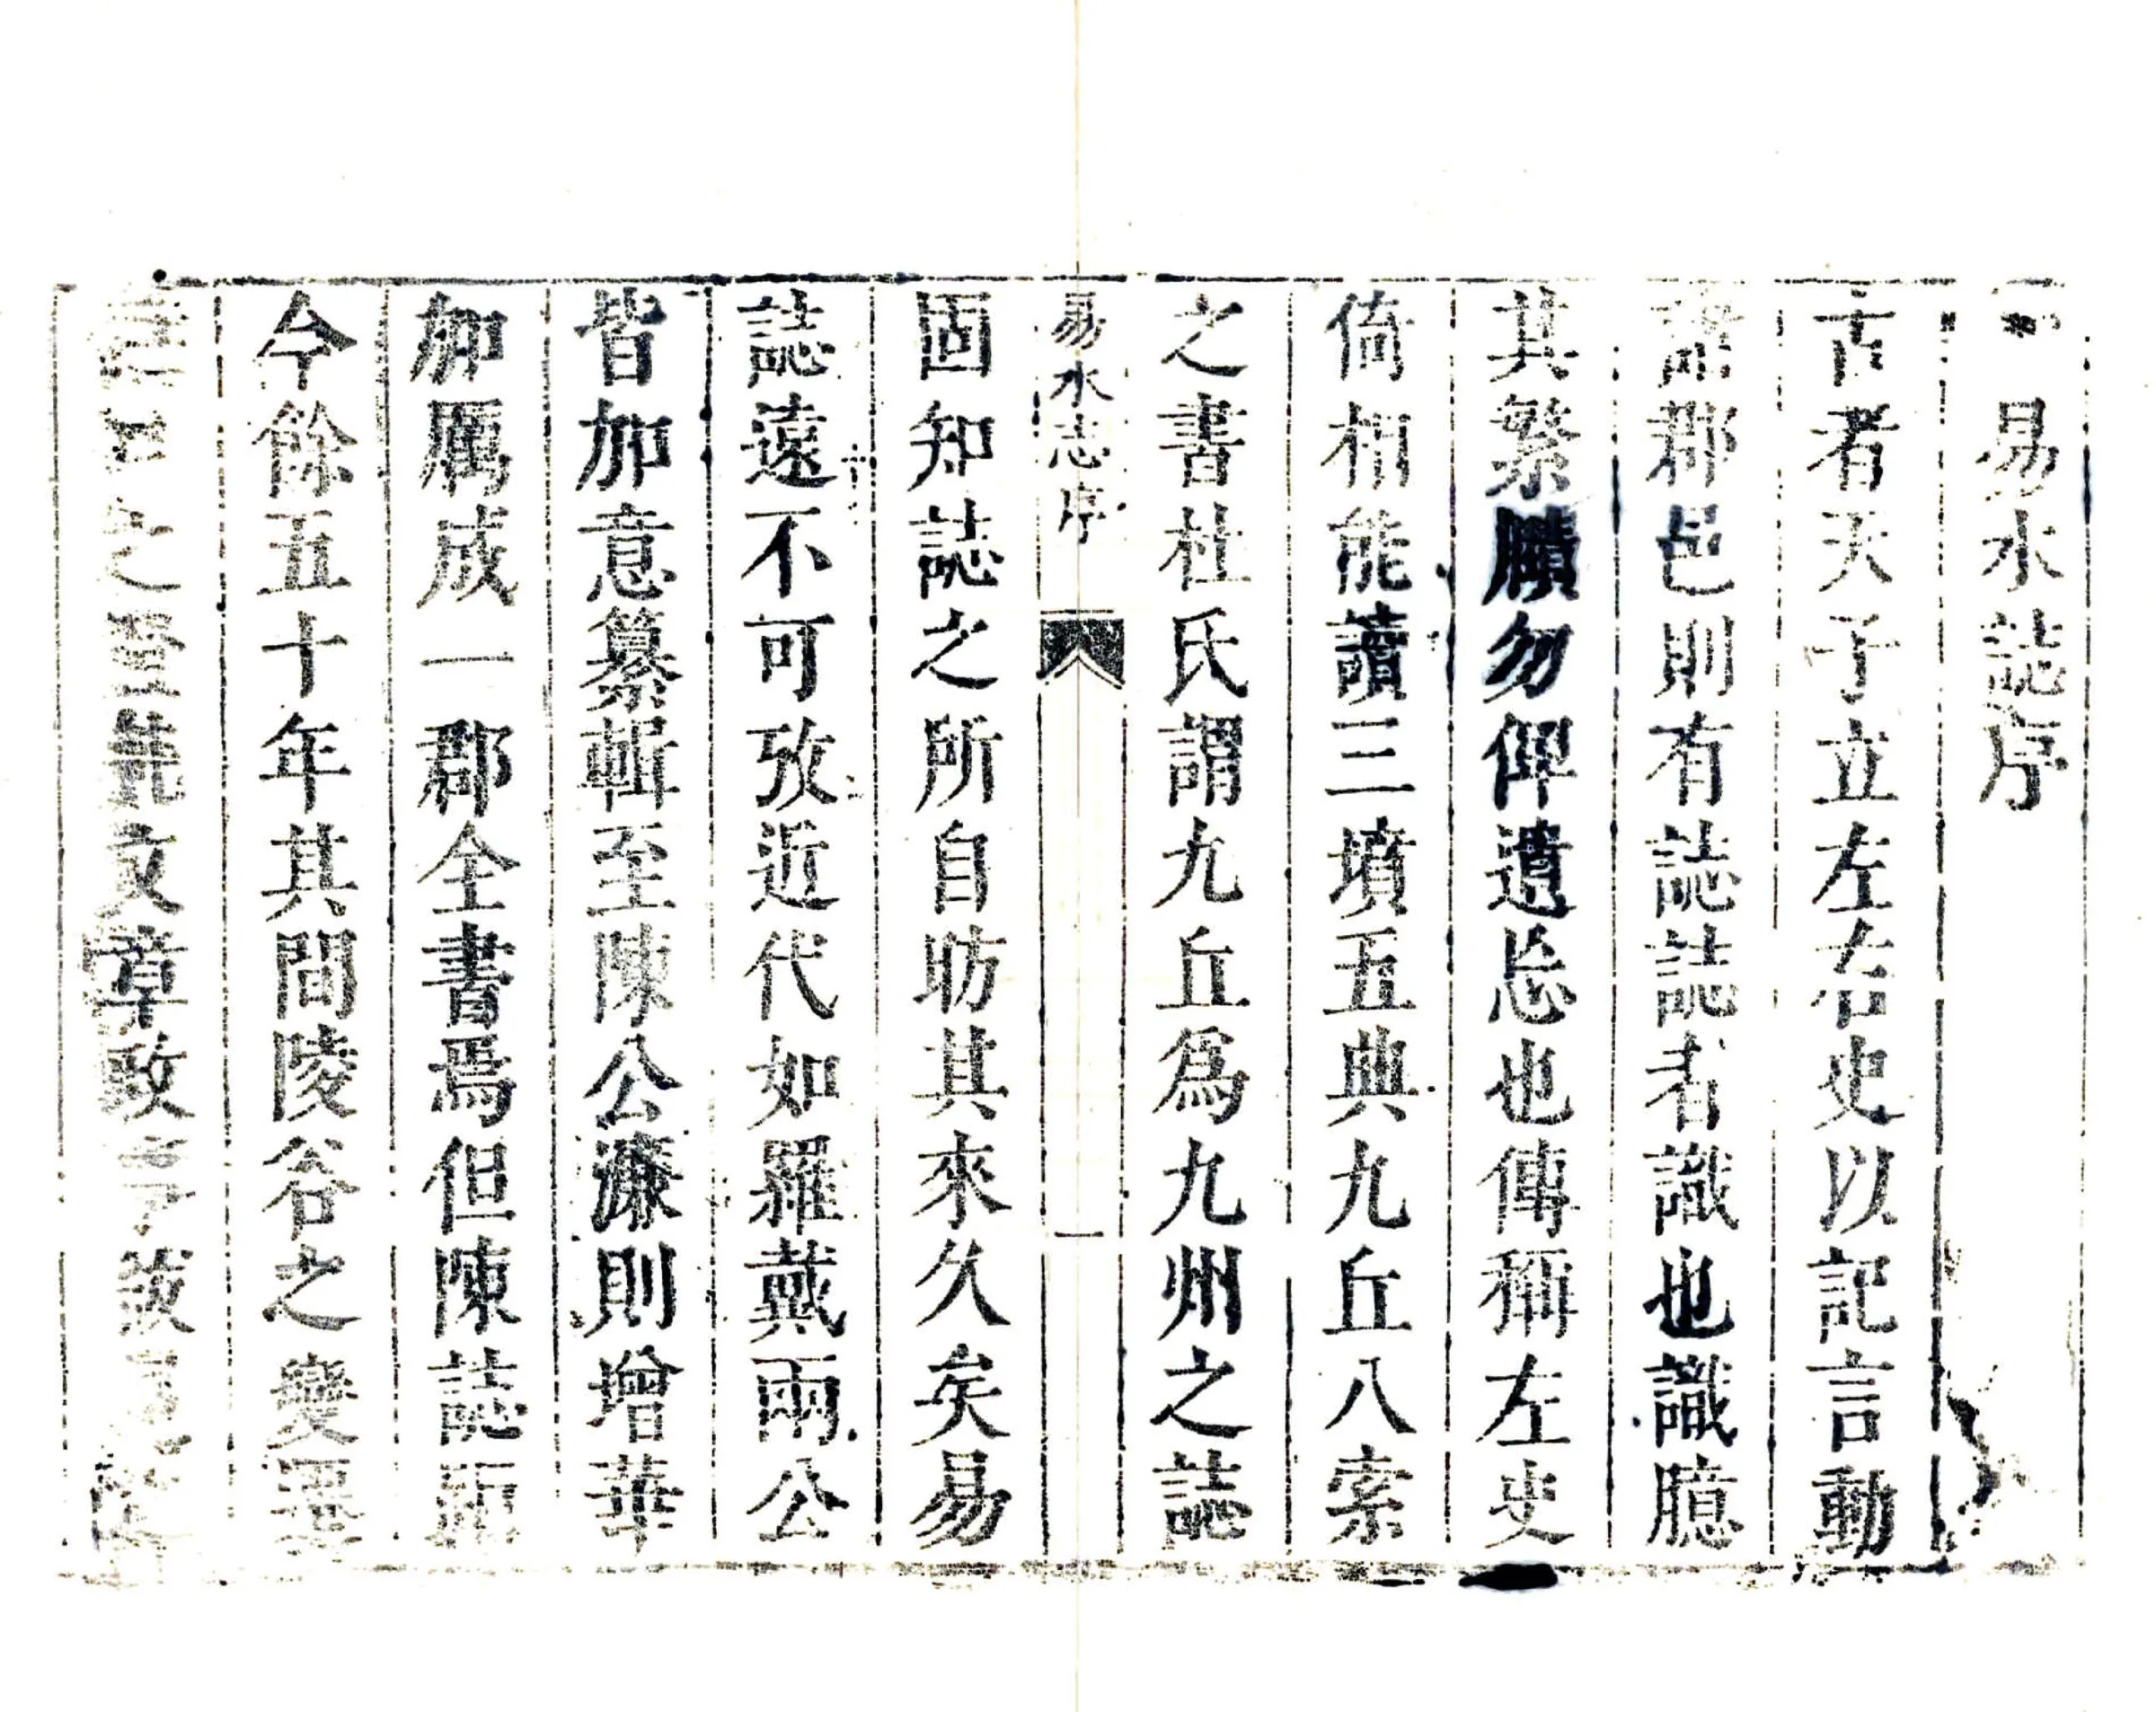 易水誌序
古者天子立左右史以記言動
諸郡邑則有誌誌者識也識臆
其繁賾勿俾遺忘也傳稱左史
倚相能讀三墳五典九丘八索
之書杜氏謂九丘爲九州之誌
易水志序
一
固知誌之所自昉其來久矣易
誌遠不可攷近代如羅戴兩公
皆加意纂輯至陳公濂則增華
加厲成一郡全書焉但陳誌距
今餘五十年其間陵谷之變遷
之文章政